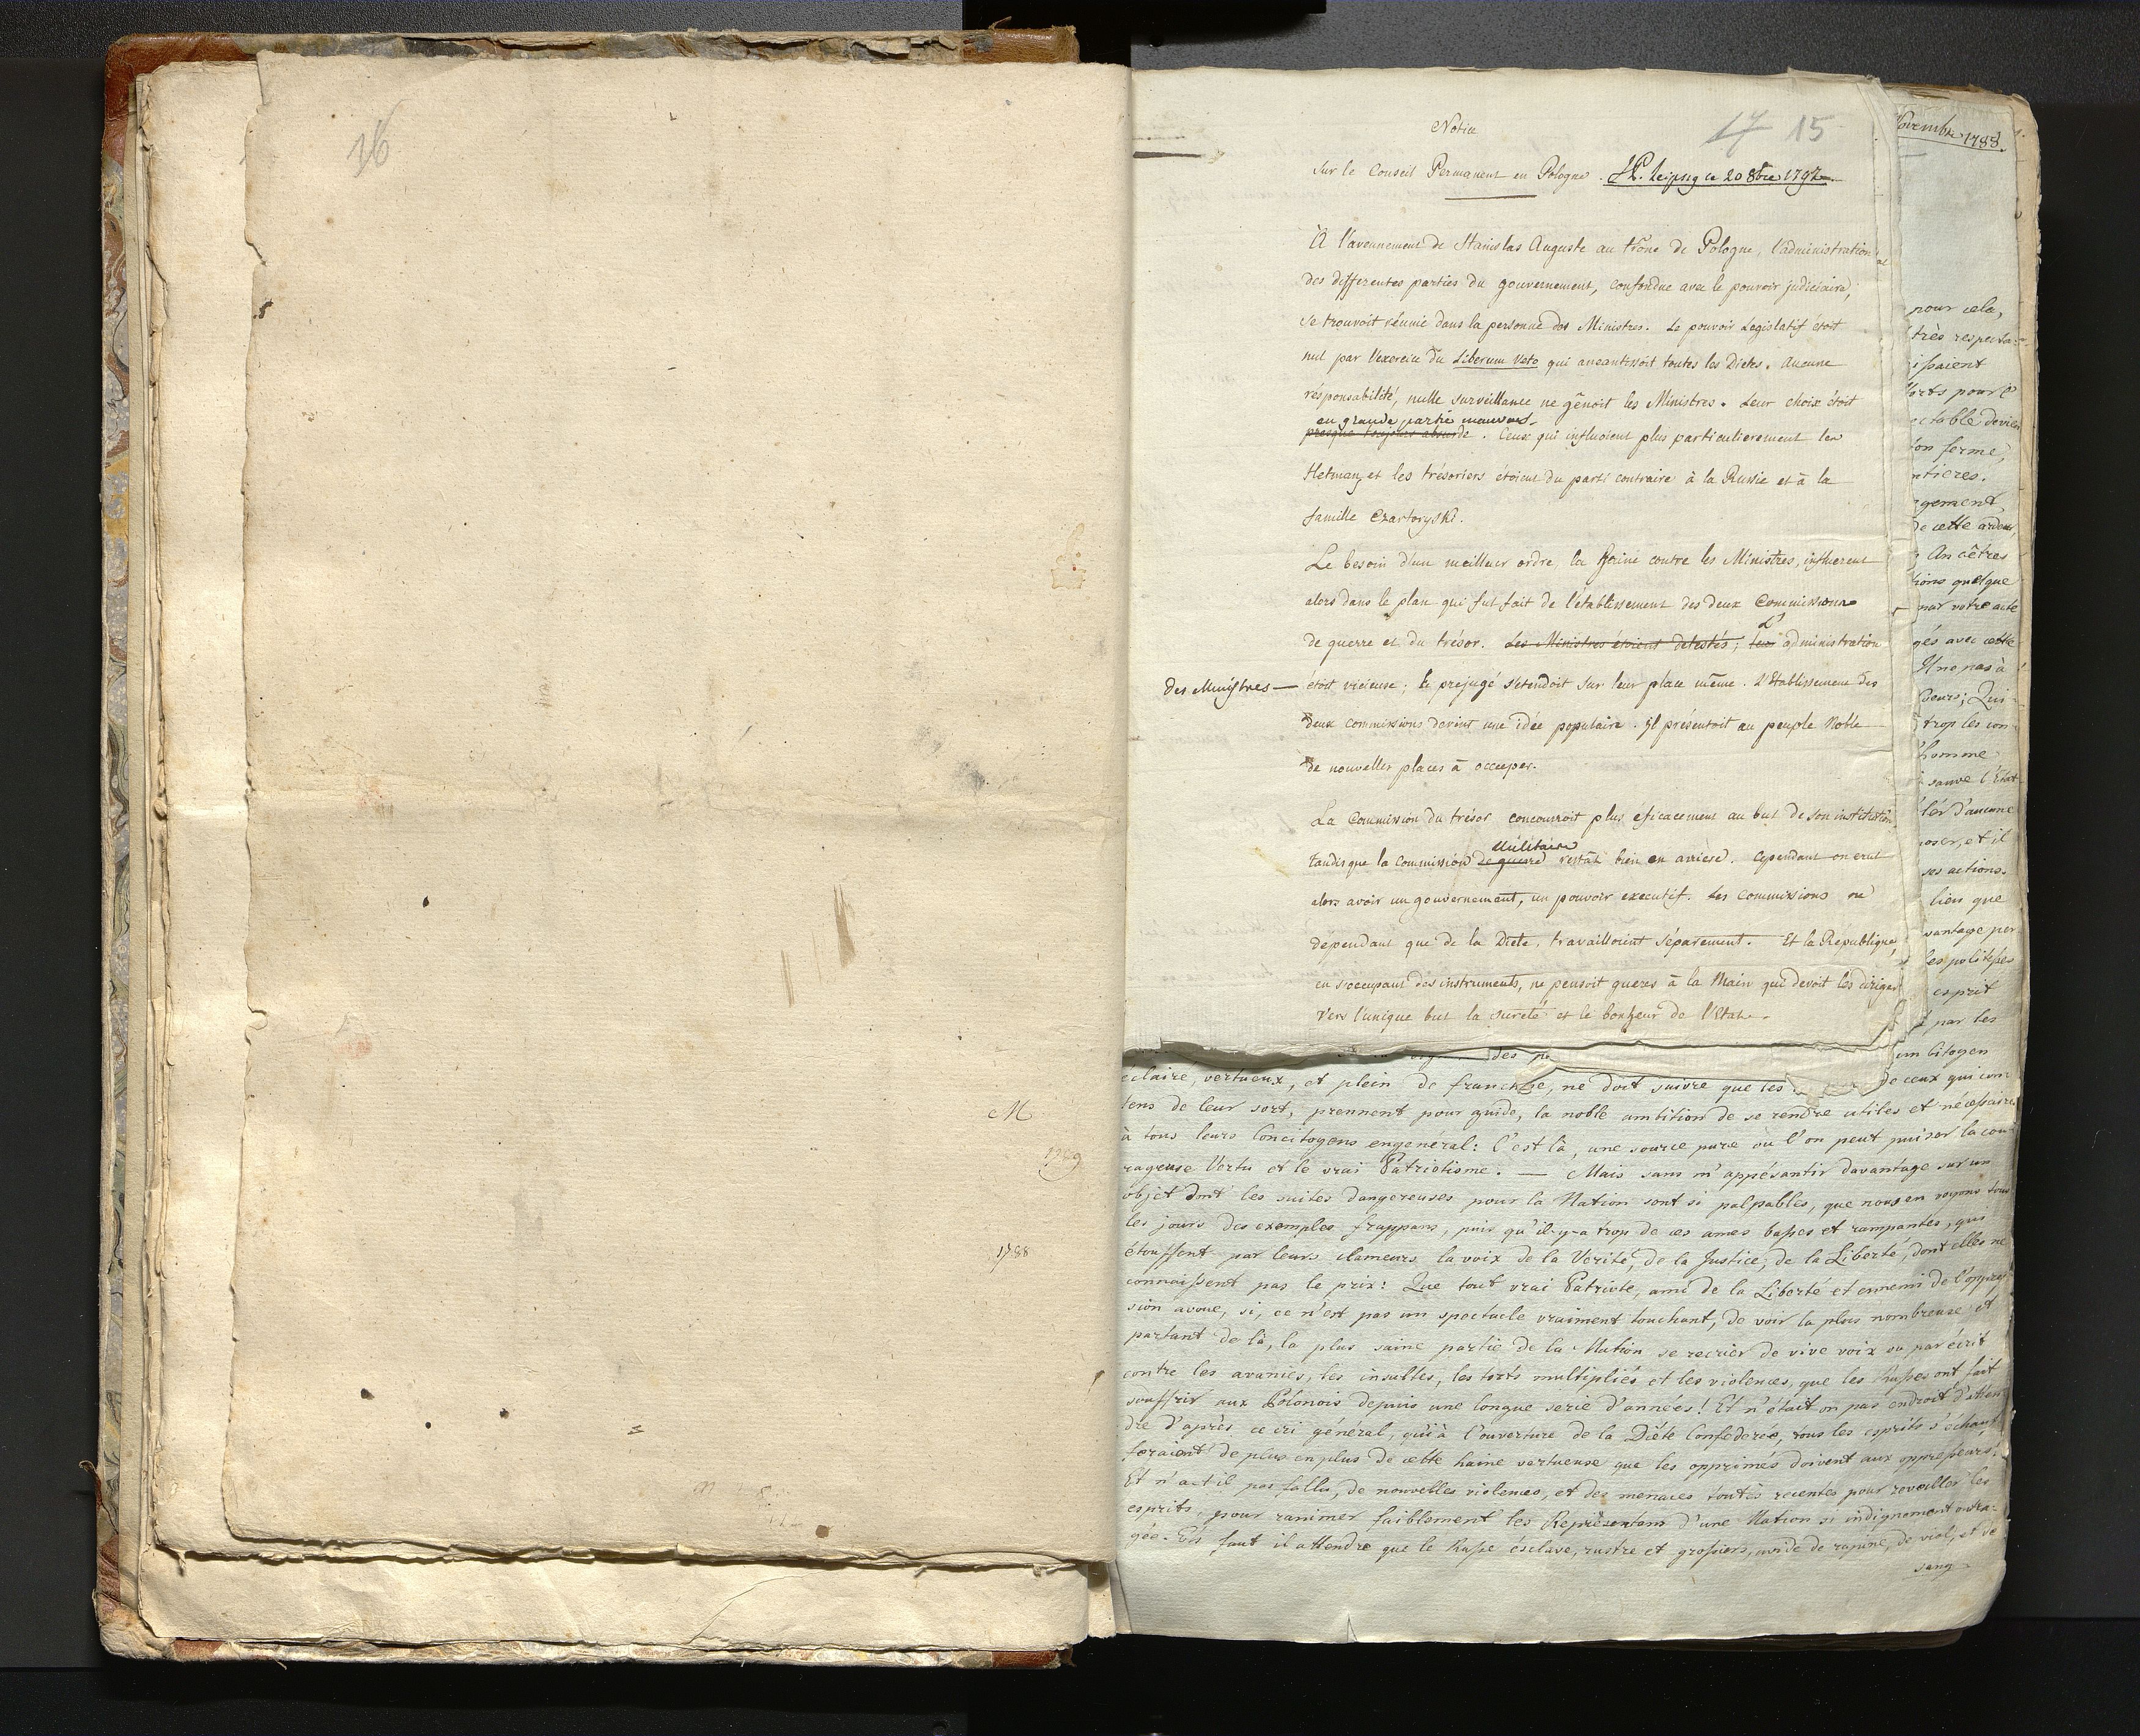 16
M
1789
1788
17 15
Notice
sur le Conseil Permanent en Pologne. Leipsig ce 20 8bre 1792.
À l'avenement de Stanislas Auguste au trône de Pologne, l'administration
des differentes parties du gouvernement, confondue avec le pouvoir judiciaire,
se trouvoit réunie dans la personne des Ministres. Le pouvoir Legislatif étoit
nul par l'exercice du Liberum Veto qui aneantissoit toutes les Dietes. Aucune
résponsabilité, nulle surveillance ne gênoit les Ministres. Leur choix étoit
en grande partie mauvais.
presque toujours absurde. Ceux qui influoient plus particulierement les
Hetmans et les trésoriers étoient du parti contraire à la Russie et à la
famille Czartoryski.
Le besoin d'un meilleur ordre, la haine contre les Ministres, influerent
alors dans le plan qui fut fait de l'établissement des deux Commissions
L'
de guerre et du trésor. Les Ministres étoient detestés; leur administration
des Ministres — étoit vicieuse; le prejugé s'etendoit sur leur place même. L'Etablissement des
deux commissions devint une idée populaire. Il présentoit au peuple Noble
de nouvelles places à occuper.
La Commission du trésor concourroit plus éficacement au but de son institution,
Militaire
tandis que la Commission de guerre restât bien en arriere. Cependant on crut
alors avoir un gouvernement, un pouvoir executif. Les Commissions ne
dependant que de la Diete, travailloient séparement. Et la Republique,
en s'occupant des instruments, ne pensoit gueres à la Main qui devoit les diriger
vers l'unique but la sureté et le bonheur de l'Etat.
Novembre 1788.
pour cela,
très respecta-
issaient
orts pour l'
ectable devien
on ferme,
ntieres.
rgement
de cette ardeur,
Ancêtres
tions quelque
par votre acte
gés avec cette
Une pas à
trop les con-
homme
sauve l'Etat
ler d'aucune
poser, et il
ses actions.
lien que
vantage per
les politesses
esprit
par les
des p
un Citoyen
éclairé, vertueux, et plein de franchise, ne doit suivre que les de ceux qui con-
tens de leur sort, prennent pour guide, la noble ambition de se rendre utiles et nécessaires
à tous leurs Concitoyens engenéral: C'est là, une source pure où l'on peut puiser la cou-
rageuse Vertu et le vrai Patriotisme. — Mais sans m'appésantir davantage sur un
objet dont les suites dangereuses pour la Nation sont si palpables, que nous en voyons tous
les jours des exemples frappans, puis qu'il-y-a trop de ces ames basses et rampantes, qui
étouffent par leurs clameurs la voix de la Verité, de la Justice, de la Liberté, dont elles ne
connaissent pas le prix: Que tout vrai Patriote, ami de la Liberté et ennemi de l'oppres-
sion avoue, si, ce n'est pas un spectacle vraiment touchant, de voir la plus nombreuse et
partant de là, la plus saine partie de la Nation se recrier de vive voix ou par écrit
contre les avanies, les insultes, les torts multipliés et les violences, que les Russes ont fait
souffrir aux Polonois depuis une longue serie d'années! Et n'était on pas endroit d'atten-
dre d'après ce cri général, qu'à l'ouverture de la Diéte Confederée, tous les esprits s'échauf-
feraient de plus en plus de cette haine vertueuse que les opprimés doivent aux oppresseurs!
Et n'a-t-il pas fallu, de nouvelles violences, et des menaces toutes recentes pour reveiller les
esprits, pour ranimer faiblement les Représentans d'une Nation si indignement outra-
gée. Eh faut il attendre que le Russe esclave, rustre et grossiers, avide de rapine, de viol, et de
sang